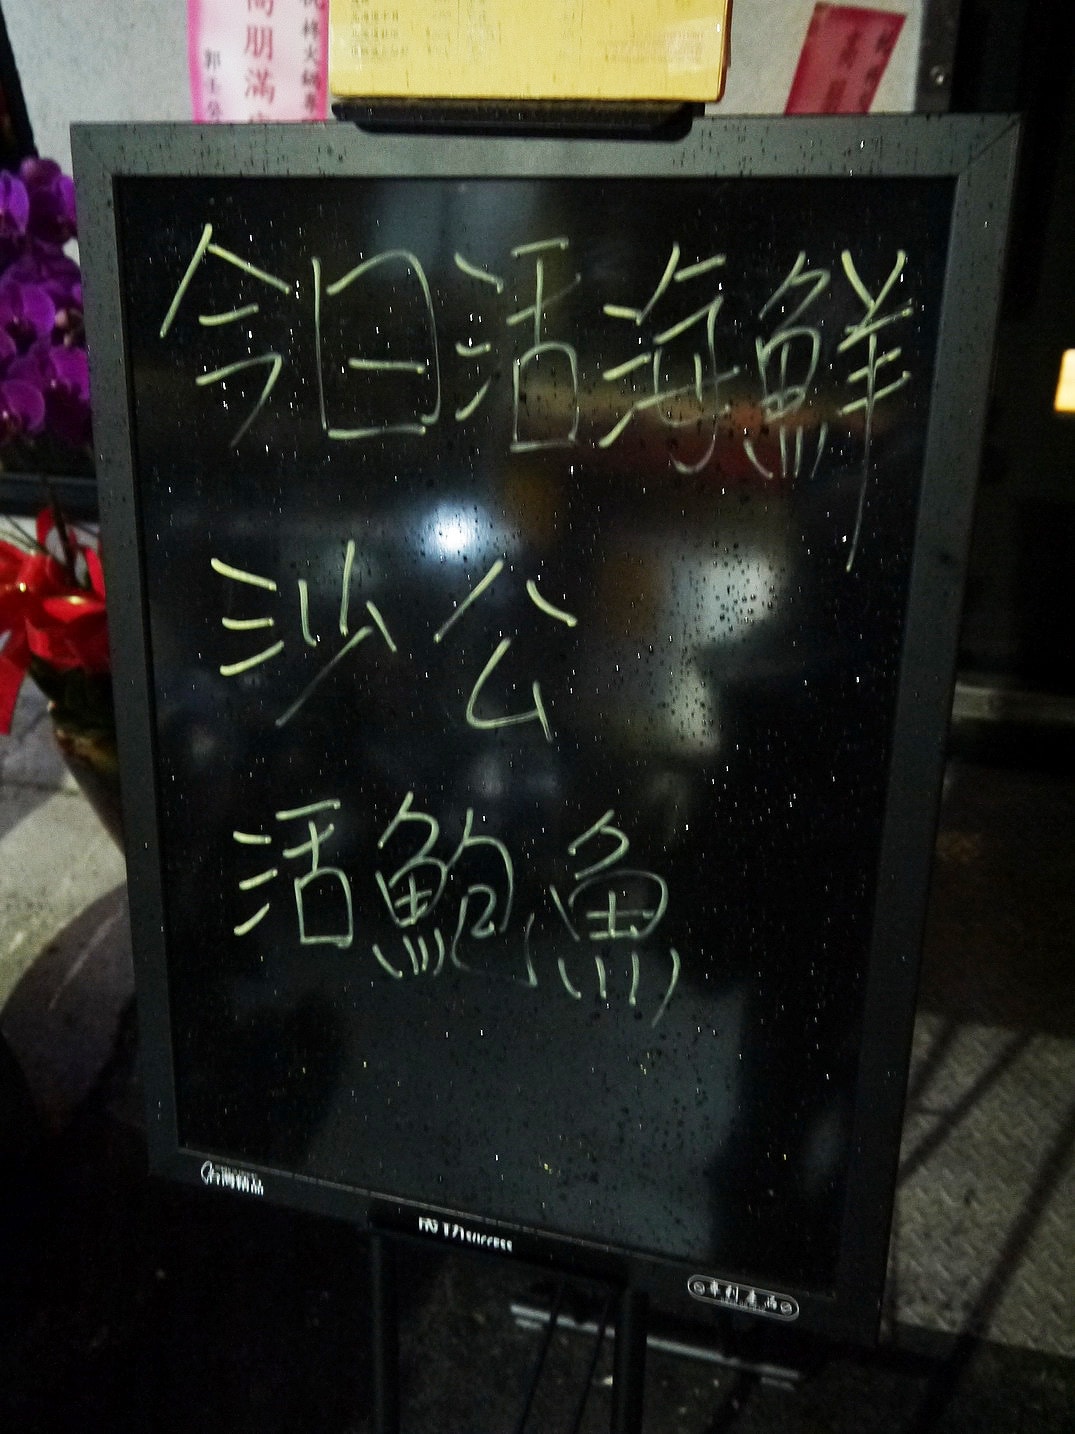 朋滿
今日活海鮮
沙公
活鮑魚
台灣精品
成功SUCCESS
專利產品